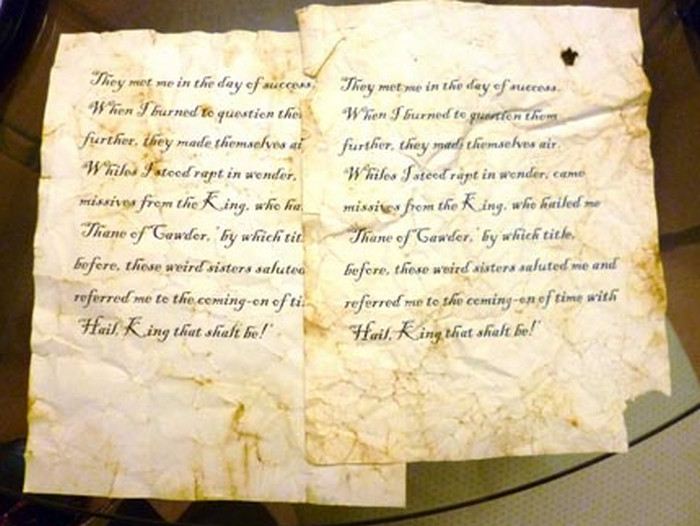 They met me in the day of success.
When I burned to question
further, they made themselves
Whiles I stood rapt in wonder,
missives from the King, who
Thane of Cawdor,' by which
before, these weird sisters saluted
referred me to the coming-on of
Hail, King that shalt be!'
They met me in the day of success.
When I burned to question them
further, they made themselves air.
Whiles I stood rapt in wonder, came
missives from the King, who hailed me
'Thane of Cawdor,' by which title,
before, these weird sisters saluted me and
referred me to the coming-on of time with
'Hail, King that shalt be!'